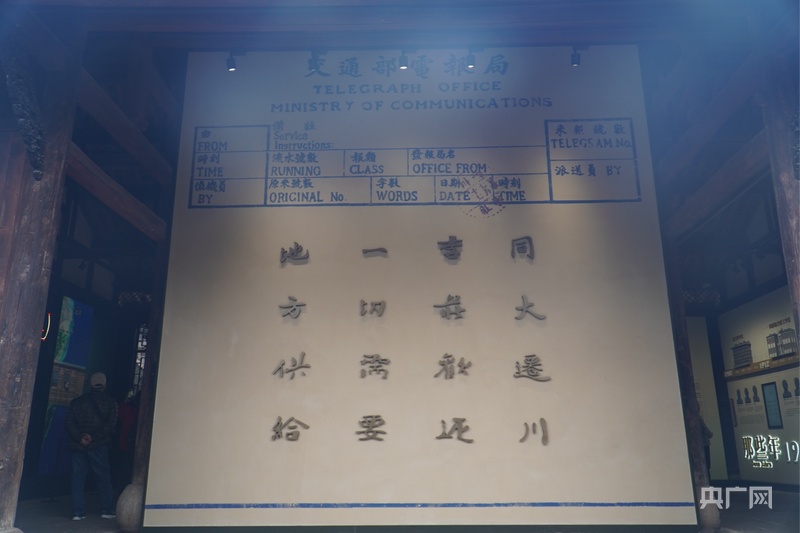 交通部電報局
TELEGRAPH OFFICE
MINISTRY OF COMMUNICATIONS
由
FROM
備註
Service
Instructions:
來報號數
TELEGRAM No.
時刻
TIME
流水號數
RUNNING
報類
CLASS
發報局名
OFFICE FROM
派送員 BY
值機員
BY
原來號數
ORIGINAL No.
字數
WORDS
日期
DATE
時刻
TIME
同大遷川
李莊歡迎
一切需要
地方供給
那些年 19
央广网